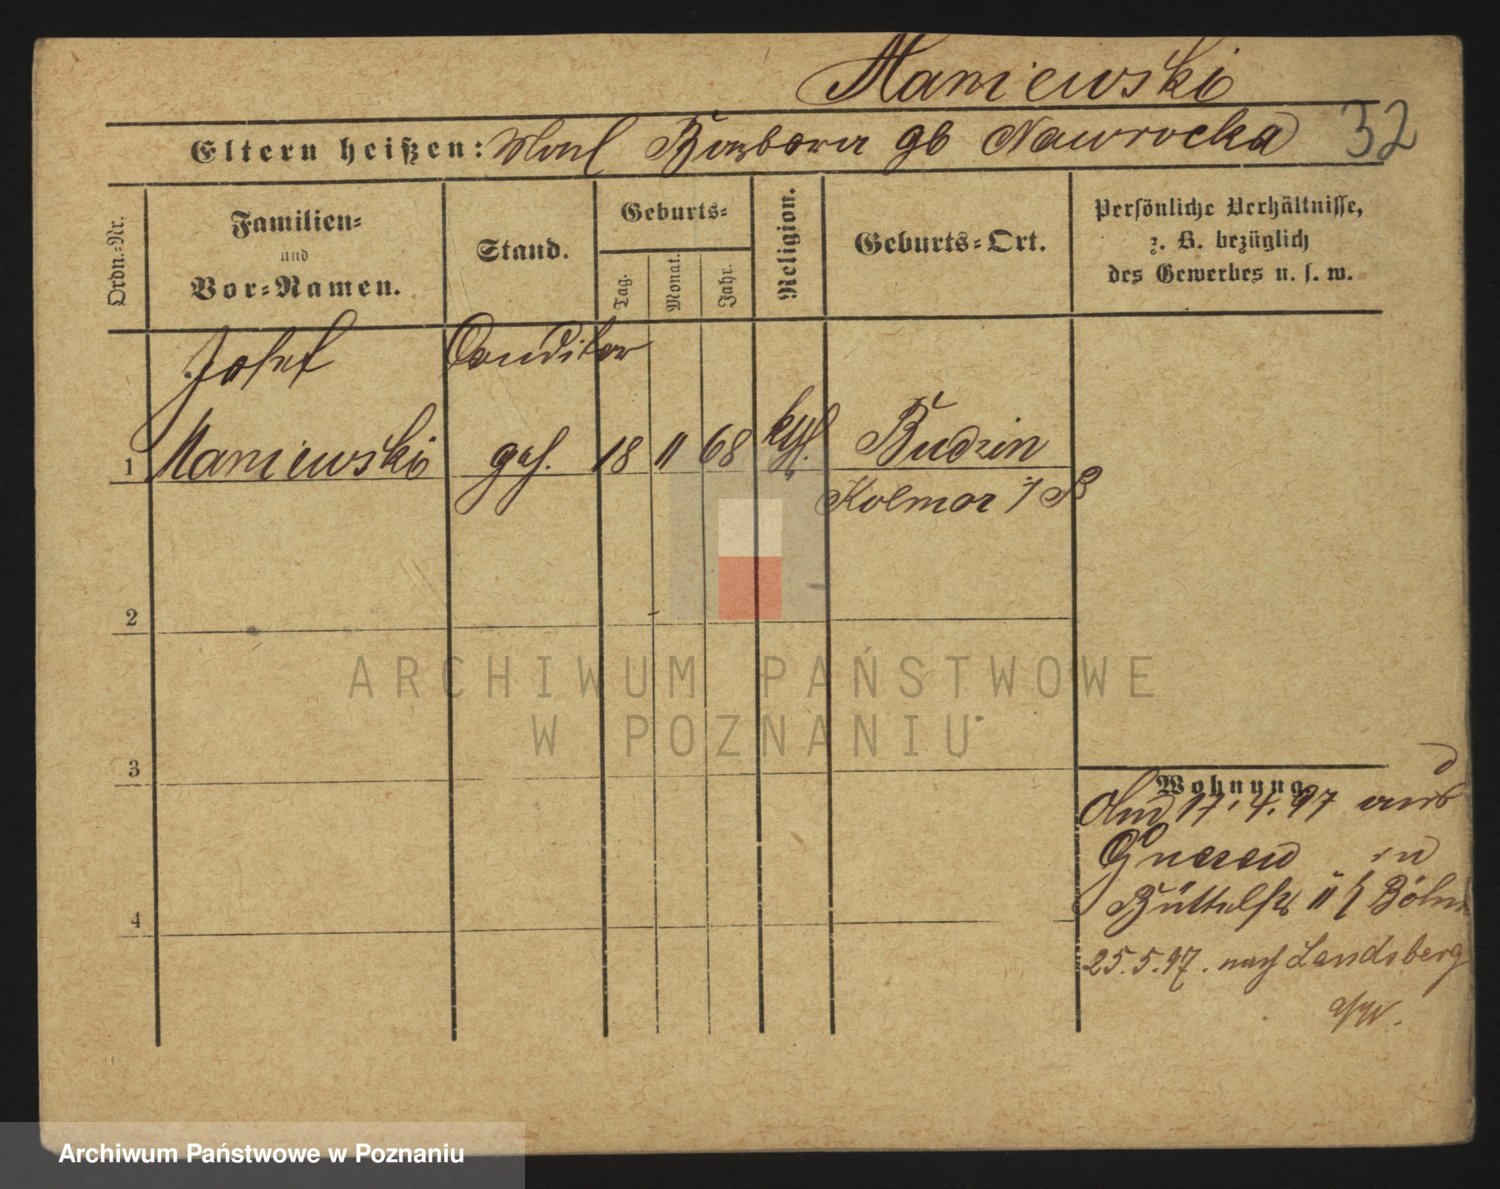 Maniewski
Eltern heißen: Barbara gb Nawrocka 32
Ordn.-Nr.
Familien-
und
Vor-Namen.
Stand.
Geburts-
Tag.
Monat.
Jahr.
Religion.
Geburts-Ort.
Persönliche Verhältnisse,
z. B. bezüglich
des Gewerbes u. s. w.
Josef Conditor
1 Maniewski geh. 18 11 68 kth. Budzin
Kolmar i/P
2
3
4
Wohnung
17.4.97 aus
Gnesen in
11
25.5.97. nach Landsberg
a/W.
ARCHIWUM PAŃSTWOWE
W POZNANIU
Archiwum Państwowe w Poznaniu